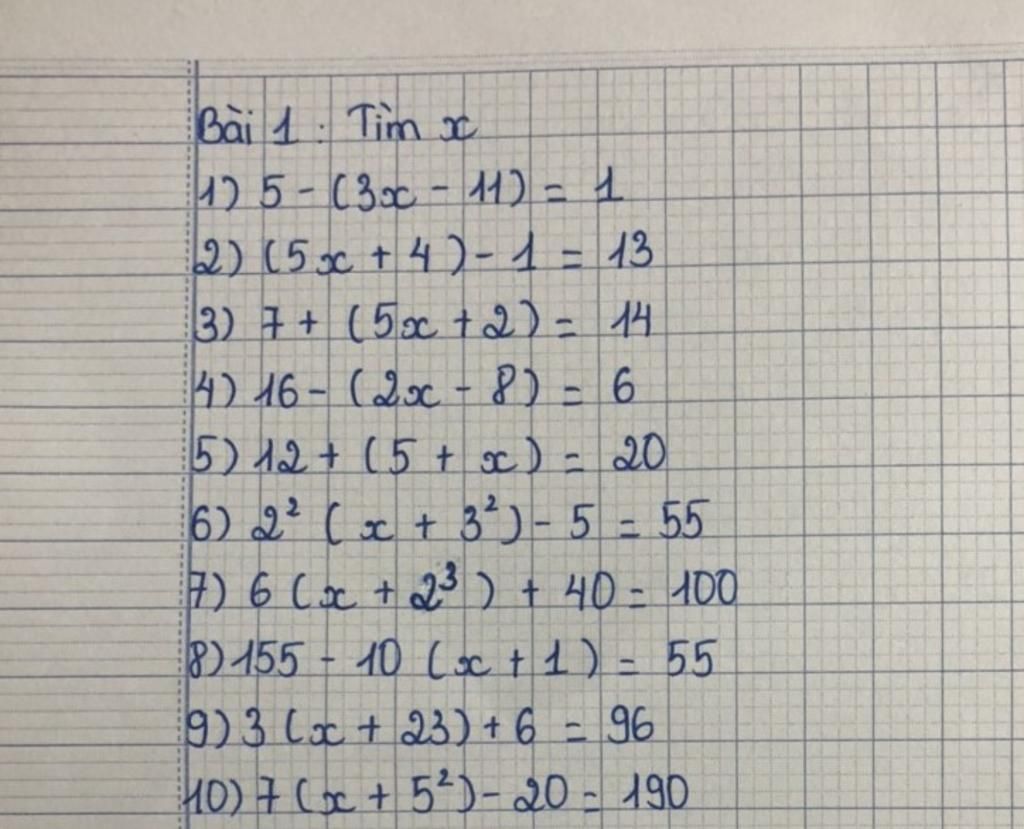 Bài 1 : Tìm x
1) 5 - (3x - 11) = 1
2) (5x + 4) - 1 = 13
3) 7 + (5x + 2) = 14
4) 16 - (2x - 8) = 6
5) 12 + (5 + x) = 20
6) 2² (x + 3²) - 5 = 55
7) 6 (x + 2³) + 40 = 100
8) 155 - 10 (x + 1) = 55
9) 3 (x + 23) + 6 = 96
10) 7 (x + 5²) - 20 = 190